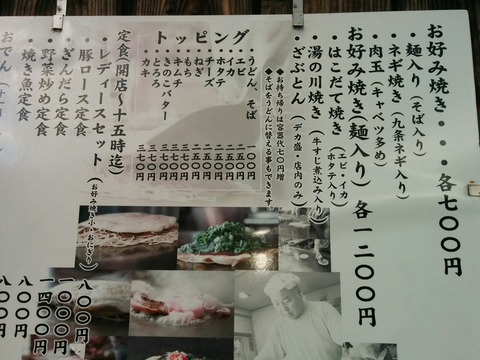 お好み焼き・・・・各七〇〇円
・麺入り（そば入り）
・ネギ焼き（九条ネギ入り）
・肉玉（キャベツ多め）
お好み焼き（麺入り）各一二〇〇円
・はこだて焼き（エビ・イカ ホタテ入り）
・湯の川焼き（牛すじ煮込み入り）
・ざぶとん（デカ盛・店内のみ）
◆お持ち帰りは容器代七〇円増
◆そばをうどんに替える事もできます。
トッピング
うどん、そば 一〇〇円
エビ
イカ
ホタテ
チーズ
ねぎ
もち
キムチ
きのこバター
とろろ
カキ 三七〇円
定食（開店〜十五時迄）
・レディースセット（お好み焼き小・おにぎり） 八〇〇円
・豚ロース定食 一〇〇〇円
・ぎんだら定食 一四〇〇円
・野菜炒め定食 八〇〇円
・焼き魚定食 八〇〇円
おでん